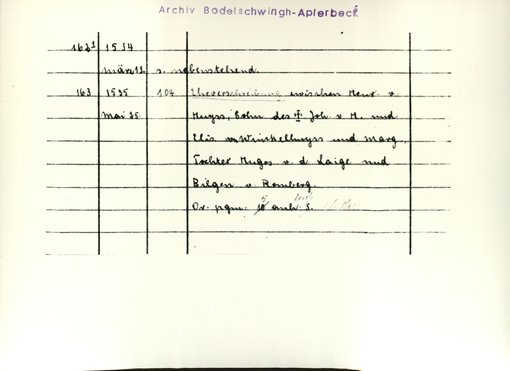 Archiv Bodelschwingh-Aplerbeck
162¹ 1534
März 12. s. nebenstehend.
163 1535 104 Eheverschreibung zwischen Henr. v.
Mai 25. Huyss, Sohn des † Joh. v. H. und
Elis. von Winkelhuyss und Marg.
Tochter Hugos v. d. Laige und
Bilgen v. Romberg.
Or. pgm. anh. S.